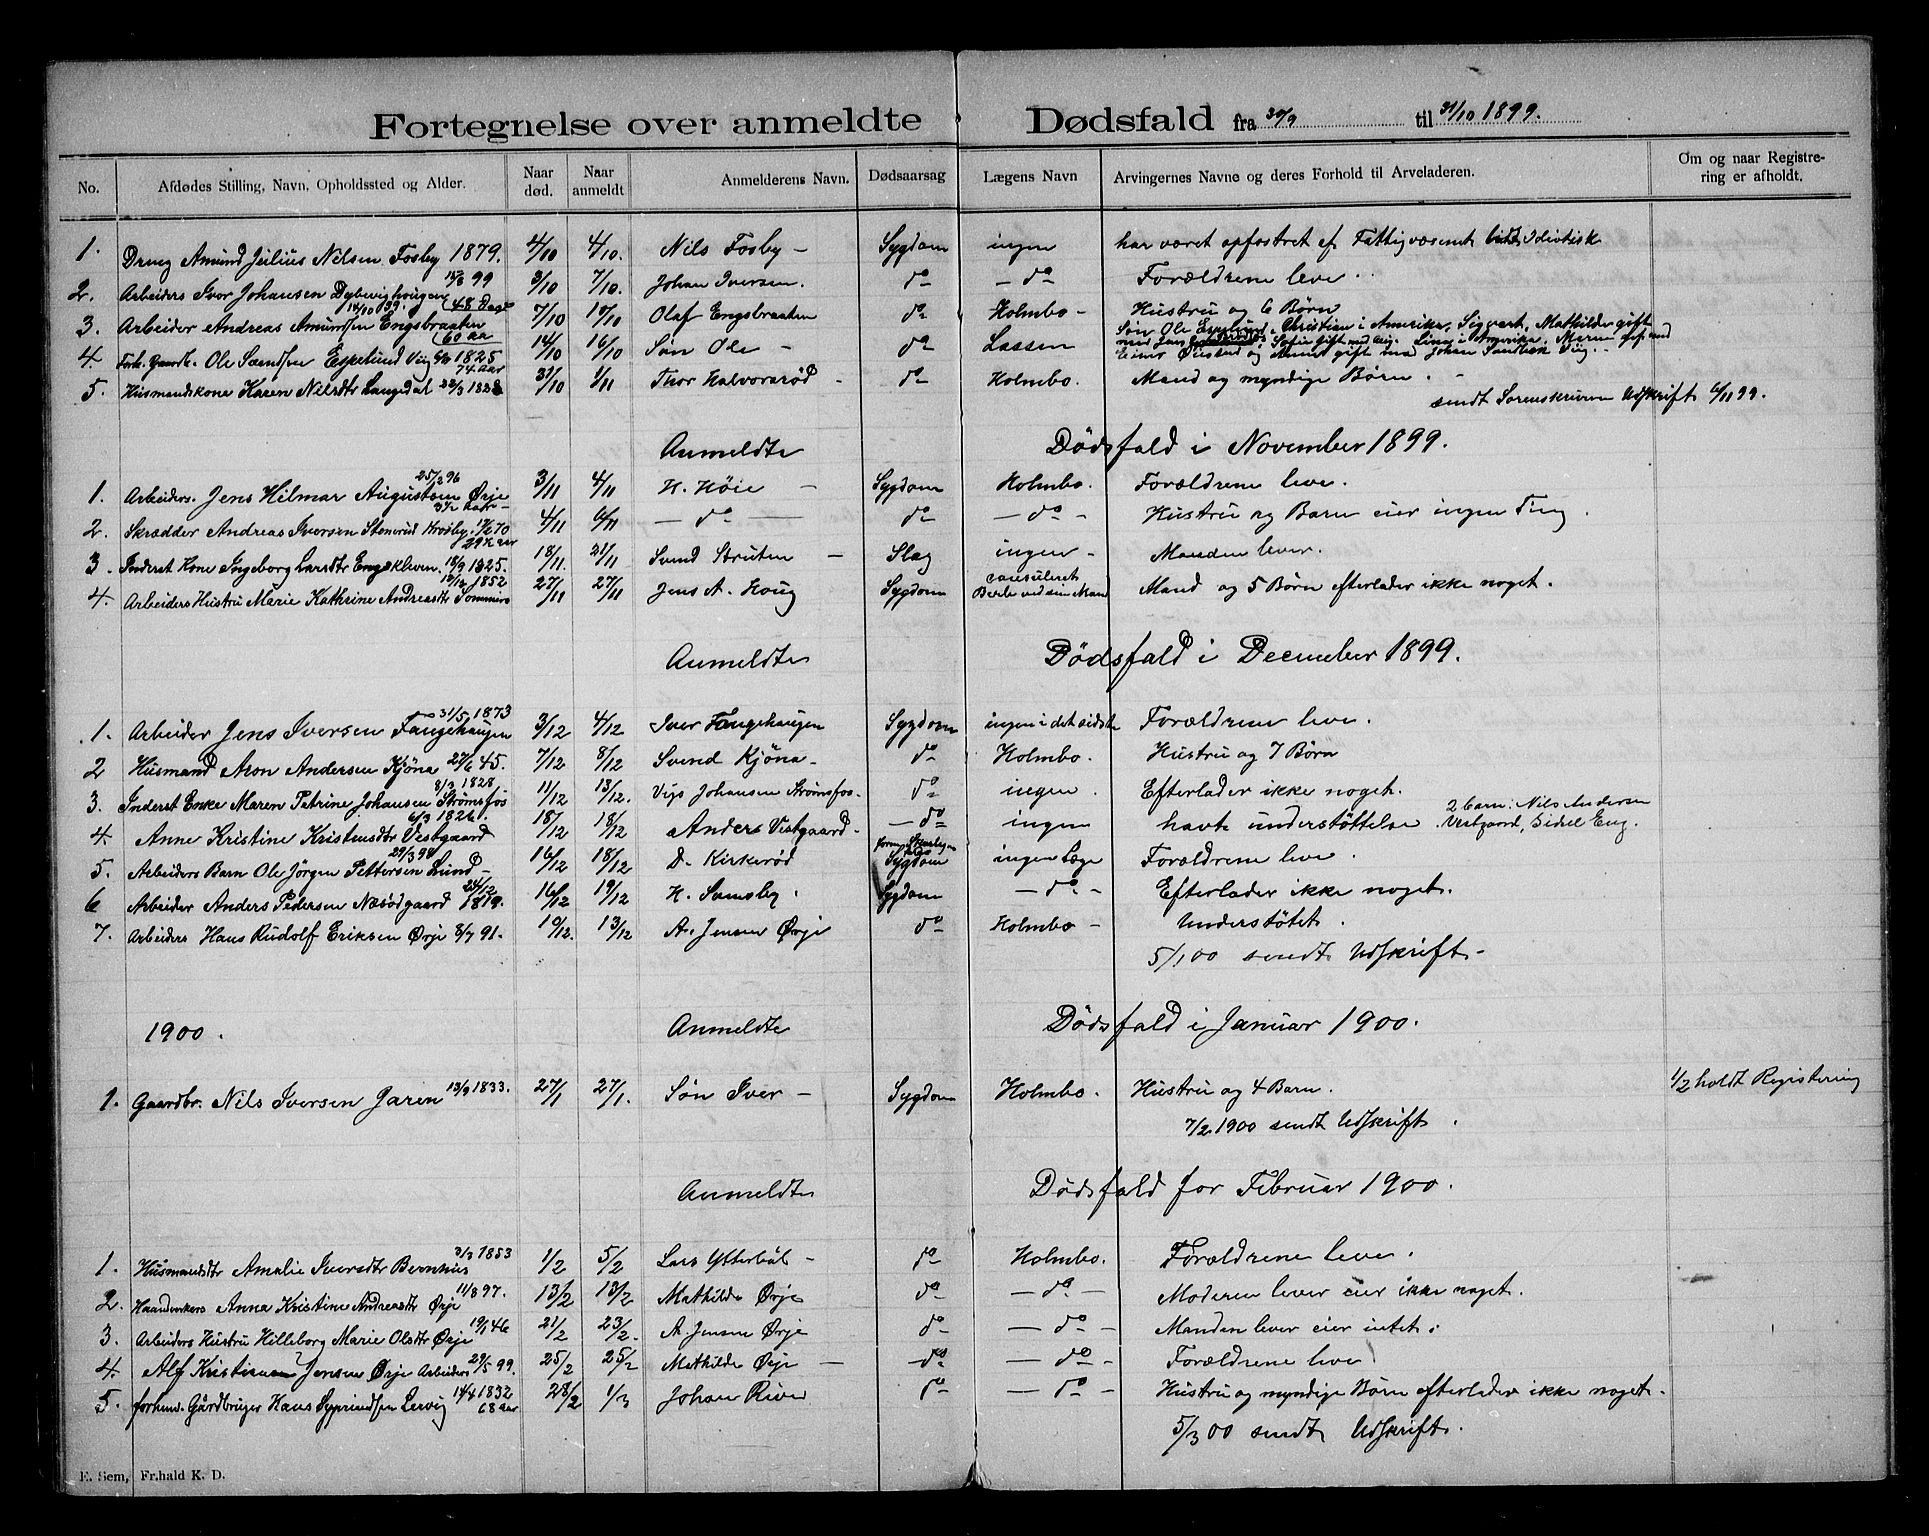 Fortegnelse over anmeldte Dødsfald fra 30/9 til 31/10 1899.
No. Afdødes Stilling, Navn, Opholdssted og Alder. Naar død. Naar anmeldt Anmelderens Navn. Dødsaarsag Lægens Navn Arvingernes Navne og deres Forhold til Arveladeren. Om og naar Registrering er afholdt.
1. Dreng Amund Julius Nilsen Fosby 1879. 4/10 4/10. Nils Fosby - Sygdom ingen har været opfostret af Fattigvæsenet Idiotisk
2. Arbeiders Ivor Johansen Dybevighougen 15/8 99 48 Dage 3/10 7/10. Johan Iversen. do - do Forældrene leve.
3. Arbeider Andreas Amundsen Engsbraaten 14/10 39 60 aa 7/10 10/10 Olaf Engsbraaten do Holmbo - Hustru og 6 Børn
4. Forh. Gaardb. Ole Svendsen Espelund Viig 1825 74 Aar 14/10 16/10 Søn Ole - do Lassen Søn Ole Espelund, Christian i Amerika, Sigvart, Mathilde gift med Sofie gift med Lina i Amerika. Maren gift med Einar Øiestad og Anne gift med Johan Sandbæk Viig.
5. Husmandskone Karen Nilsdtr Langedal 22/3 1838 31/10 1/11 Thor Halvorsrød - do Holmbo. Mand og myndige Børn. -
sendt Sorenskriveren Udskrift 6/11 99.
Anmeldte Dødsfald i November 1899.
1. Arbeiders. Jens Hilmar Augustsen Ørje 25/2 96 3 1/2 Aar - 3/11 4/11 H. Höie - Sygdom Holmbo. Forældrene leve.
2. Skrædder Andreas Iversen Stenerud Krosby. 17/2 70 29 1/2 aar 4/11 6/11 - do - do - do - Hustru og Barn eier ingen Ting.
3. Inderst Kone Ingeborg Larsdtr Engskleven. 18/9 1825. 18/11. 21/11 Svend Struten - Slag ingen - Manden lever.
4. Arbeiders Hustru Marie Kathrine Andreasdtr Sommero 12/12 1852 27/11 27/11 Jens A. Houg Sygdom consuleret Berle ved sin Mand Mand og 5 Børn efterlader ikke noget.
Anmeldte Dødsfald i December 1899.
1. Arbeider Jens Iversen Fangehaugen 31/5 1873 3/12 4/12 Iver Fangehaugen Sygdom ingen i det sidste Forældrene leve.
2 Husmand Aron Andersen Kjöna 27/6 45. 7/12 8/12 Svend Kjöna - do Holmbo. Hustru og 7 Børn
3. Inderst Enke Maren Petrine Johansen Strømsfos 8/3 1828 11/12 13/12. Vigo Johansen Strømsfos - do ingen. Efterlader ikke noget.
4. Anne Kristine Kristensdtr Vestgaard 6/3 1826. 18/12 18/12 Anders Vestgaard - - do ingen havt understöttelse 2 barn: Nils Andersen Vestgaard, Sidsel Eng.
5. Arbeiders Barn Ole Jörgen Pettersen Lund - 29/3 98 16/12 18/12 D. Kirkeröd Sygdom ingen Læge Forældrene leve.
6 Arbeider Anders Pedersen Næsødgaard 24/12 1819. 16/12 19/12 H. Svensby. Sygdom - do - Efterlader ikke noget.
7. Arbeiders Hans Rudolf Eriksen Ørje 8/7 91. 10/12. 13/12 A. Jensen Ørje do Holmbo - Understötet.
5/1 00 sendt Udskrift -
1900. Anmeldte Dødsfald i Januar 1900.
1. Gaardbr. Nils Iversen Jaren 13/9 1833. 27/1 27/1. Søn Iver - Sygdom Holmbo. Hustru og 4 Barn. 1/2 holdt Registering
7/2 1900 sendt Udskrift.
Anmeldte Dødsfald for Februar 1900.
1. Husmandsdtr Amalie Iversdtr Bernhus 3/3 1853 1/2 5/2 Lars Ytterböl - do Holmbo. Forældrene leve.
2. Haandverkers Anna Kristine Andreasdtr Ørje 11/8 97. 13/2 13/2 Mathilde Ørje do - do - Moderen lever eier ikke noget.
3. Arbeiders Hustru Hilleborg Marie Olsdtr Ørje 19/1 46 21/2 23/2. A. Jensen Ørje do - do - Manden lever eier intet.
4. Alf Kristiansen Jensen Ørje Arbeiders 29/5 99. 25/2 25/2 Mathilde Ørje - do - do - Forældrene leve
5. forhenv. Gårdbruger Hans Syprindsen Lervig 14/4 1832 68 aar 28/2 1/3 Johan River do - do - Hustru og myndige Børn efterlader ikke noget.
5/3 00 sendt Udskrift.
E. Sem, Fr.hald K. D.